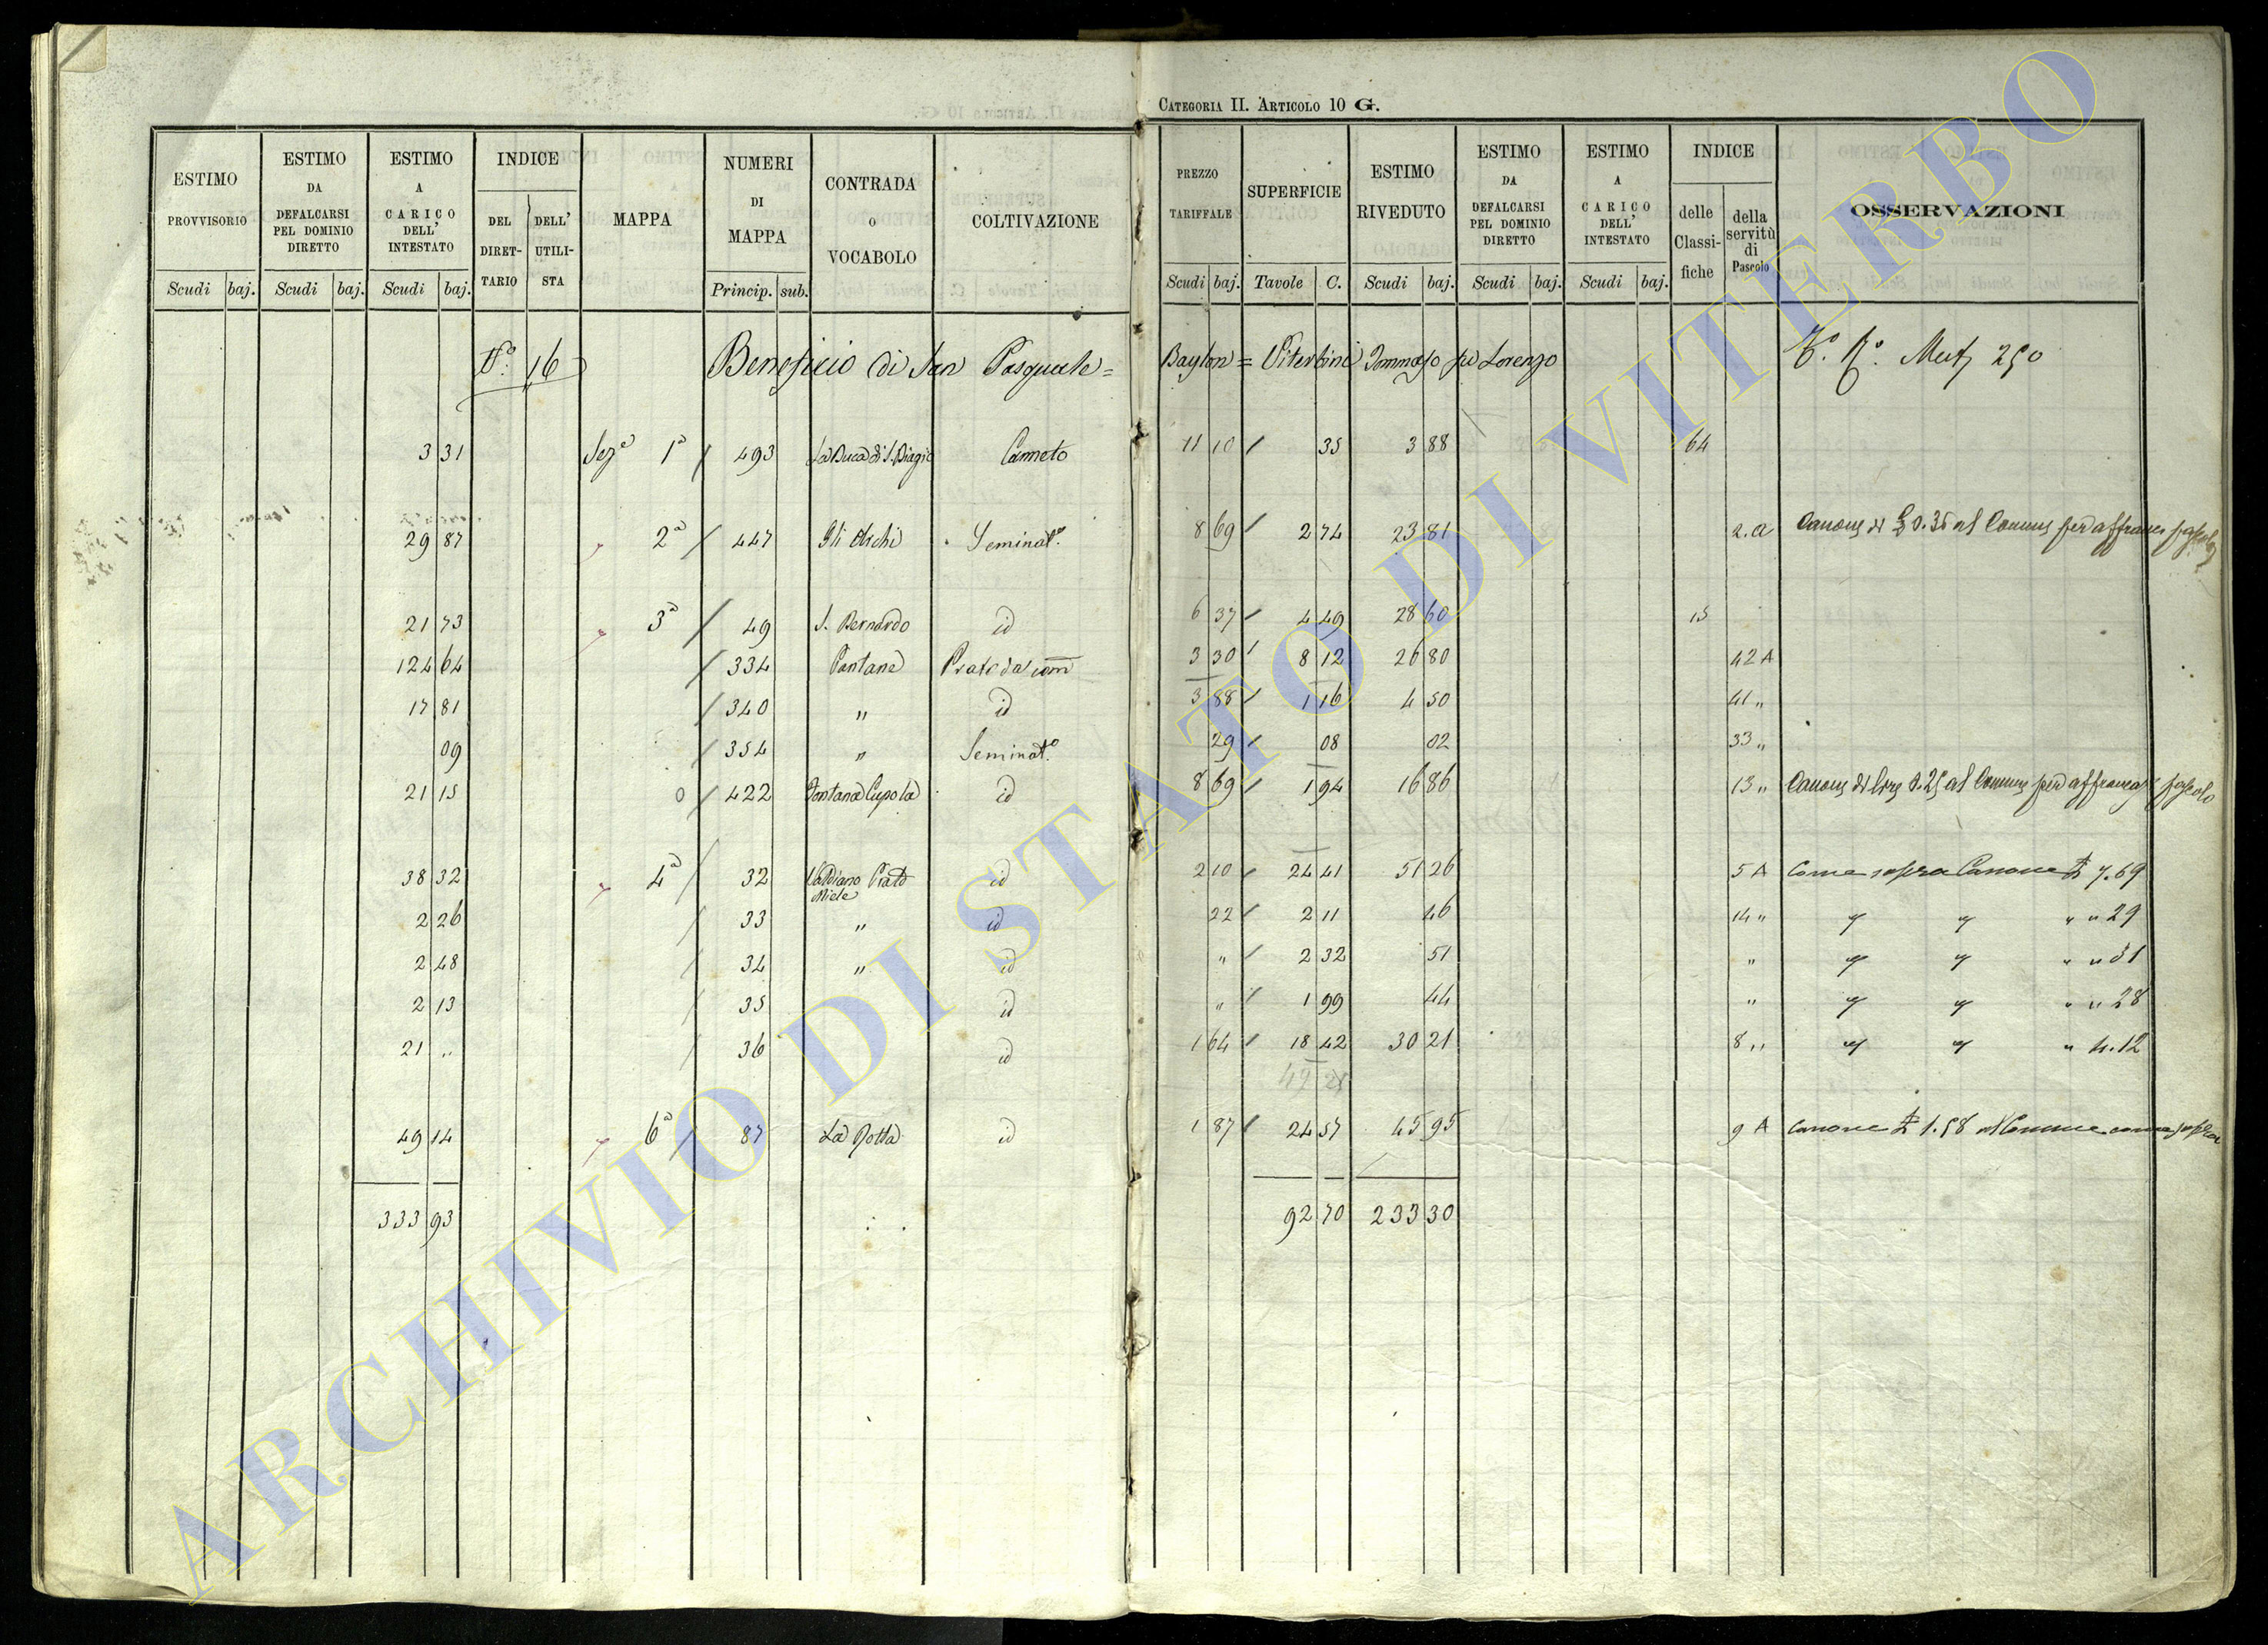 CATEGORIA II. ARTICOLO 10 G.
ESTIMO PROVVISORIO Scudi baj. ESTIMO DA DEFALCARSI PEL DOMINIO DIRETTO Scudi baj. ESTIMO A CARICO DELL' INTESTATO Scudi baj. INDICE DEL DIRETTARIO DELL' UTILISTA MAPPA NUMERI DI MAPPA Princip. sub. CONTRADA O VOCABOLO COLTIVAZIONE PREZZO TARIFFALE Scudi baj. SUPERFICIE Tavole C. ESTIMO RIVEDUTO Scudi baj. ESTIMO DA DEFALCARSI PEL DOMINIO DIRETTO Scudi baj. ESTIMO A CARICO DELL' INTESTATO Scudi baj. INDICE delle Classifiche della servitù di Pascolo OSSERVAZIONI
N.° 16 Beneficio di San Pasquale = Baylon = Viterbini Tommaso fu Lorenzo 250
3 31 Sez.e 1a / 493 La Buca di S. Biagio Canneto 11 10 / 35 3 88 64
29 87 2a / 447 Gli Archi Seminat.o 8 69 / 2 74 23 81 2. a Canone di £ 0.35 al Comune per affranc. pascolo
21 73 3a / 49 S. Bernardo id 6 37 / 4 49 28 60 15
124 64 / 334 Pantane Prato da 3 30 / 8 12 26 80 42 A
17 81 / 340 " id 3 88 / 1 16 4 50 41 "
09 / 354 " Seminat.o 29 / 08 02 33 "
21 15 0 / 422 Fontana Cupola id 8 69 / 1 94 16 86 13 " Canone di lire 0.25 al Comune per affrancaz. pascolo
38 32 4a / 32 Prato Miele id 2 10 / 24 41 51 26 5 A Come sopra Canone £ 7.69
2 26 / 33 " id 22 / 2 11 46 14 " " " " " 29
2 48 / 34 " id " / 2 32 51 " " " " " 31
2 13 / 35 id " / 1 99 44 " " " " " 28
21 " / 36 id 1 64 / 18 42 30 21 8 " " " " 4.12
49 25
49 14 6a / 87 La Rotta id 1 87 / 24 57 45 95 9 A Canone £ 1.58 al Comune come sopra
333 93 92 70 233 30
ARCHIVIO DI STATO DI VITERBO